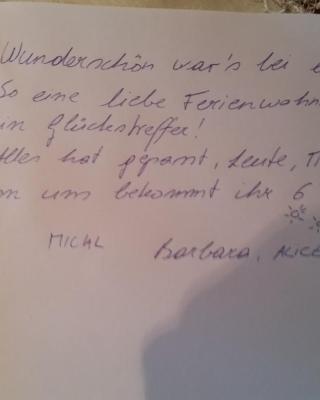 Wunderschön war's bei e
So eine liebe Ferienwohn
in Glückstreffer!
Alles hat gepasst, Leute, Ti
on uns bekommt ihr 6
MICHL Barbara,